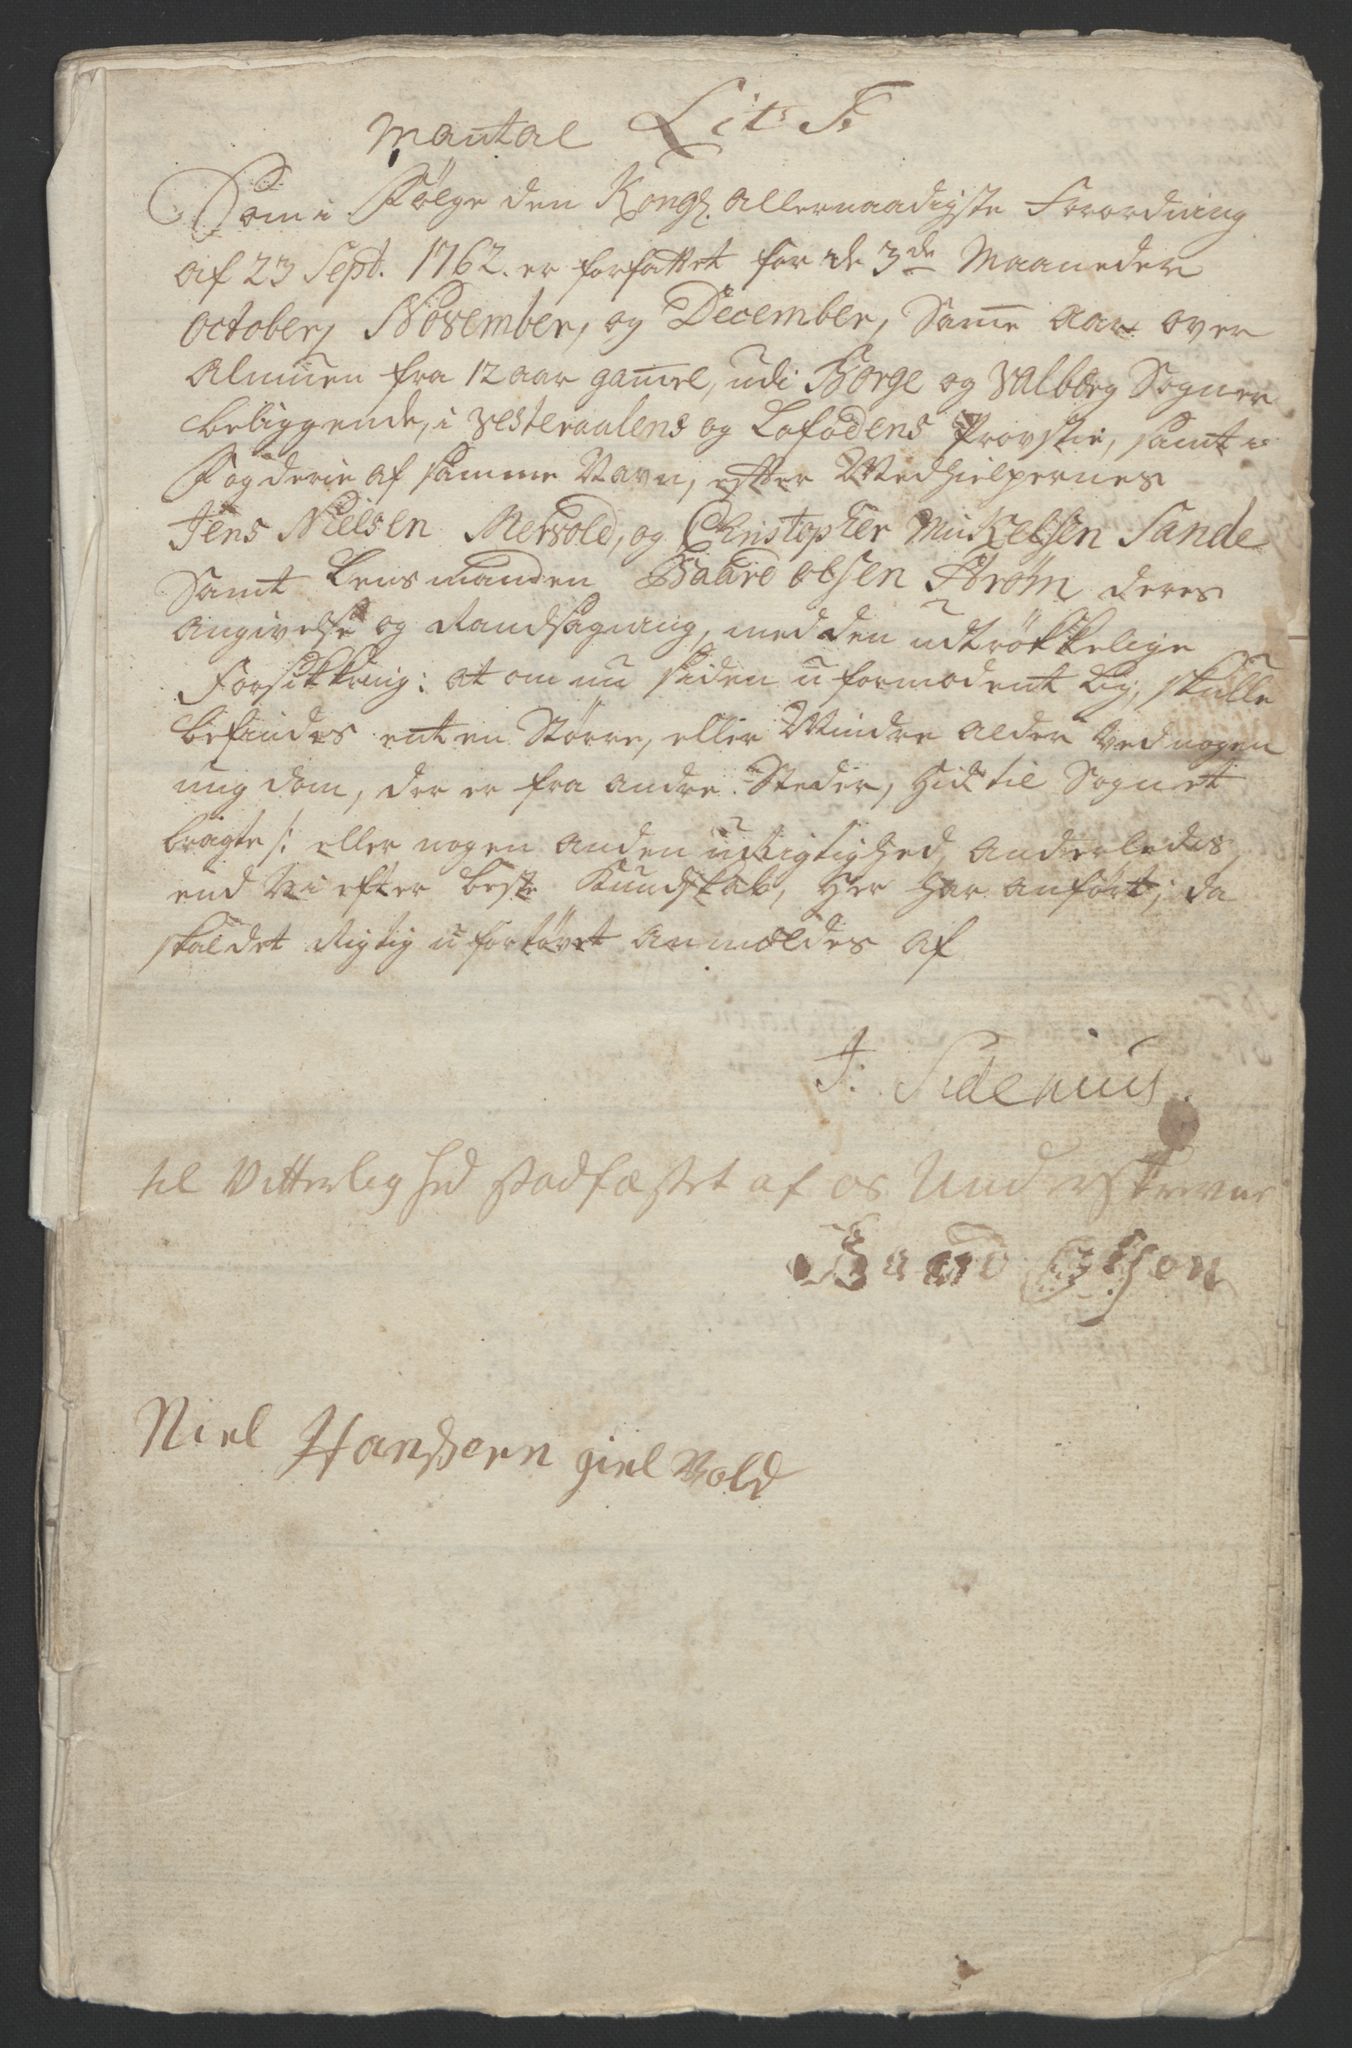 Mantal Lit: F:
Som i Følge den Kongl. allernaadigste Forordning
af 23 Sept. 1762. er forfattet for de 3de Maaneder
October, November, og December, Same Aar over
Almuen fra 12 aar gamel, udi Borge og Valberg Sogner
beliggende, i Vesteraalens og Lofodens Provstie, samt i
Fogderie af samme Navn, efter Medhielpernes
Jens Nielsen Mersold, og Christopher Mickelsen Sande
Samt Lensmanden Baard olsen Strøm deres
Angivelse og Randsagning, med den udtrøkkelige
Forsikkring: at om nu siden uformodentlig, skulle
befindes enten Større, eller Mindre alder Ved nogen
ungdom, der er fra andre Steder, hid til Sognet
bragte /: eller nogen anden urigtighed, anderledes,
end Vi efter beste Kundskab, her har anført; da
skal det rigtig ufortøvet anmeldes af
J: Sidenius.
til Vitterlighed stadfæstet af os Underskrevne
Baard Olsen
Niel Hanssen giel Vold